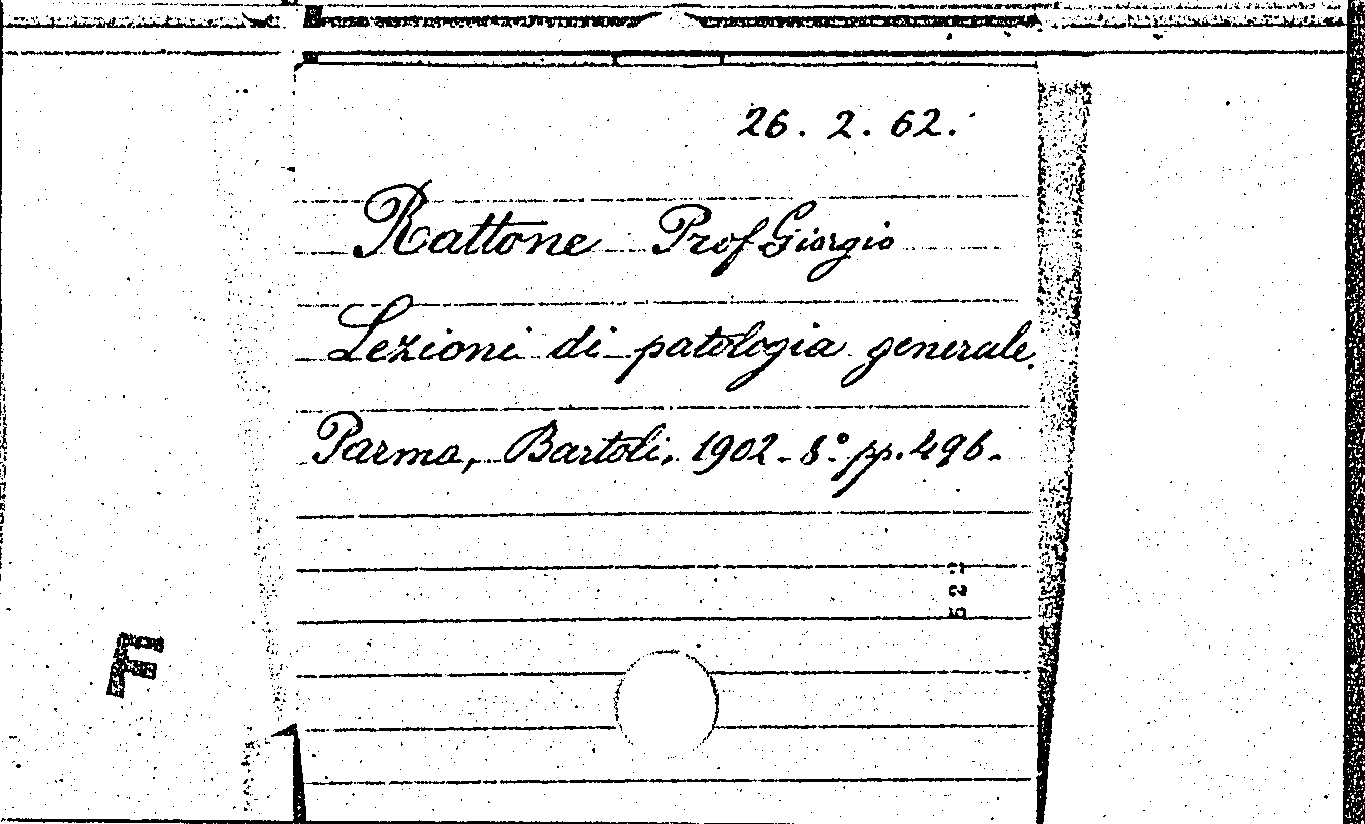 26. 2. 62.
Rattone Prof Giorgio
Lezioni di patologia generale.
Parma, Bartoli, 1902 - 8º pp. 496.
F